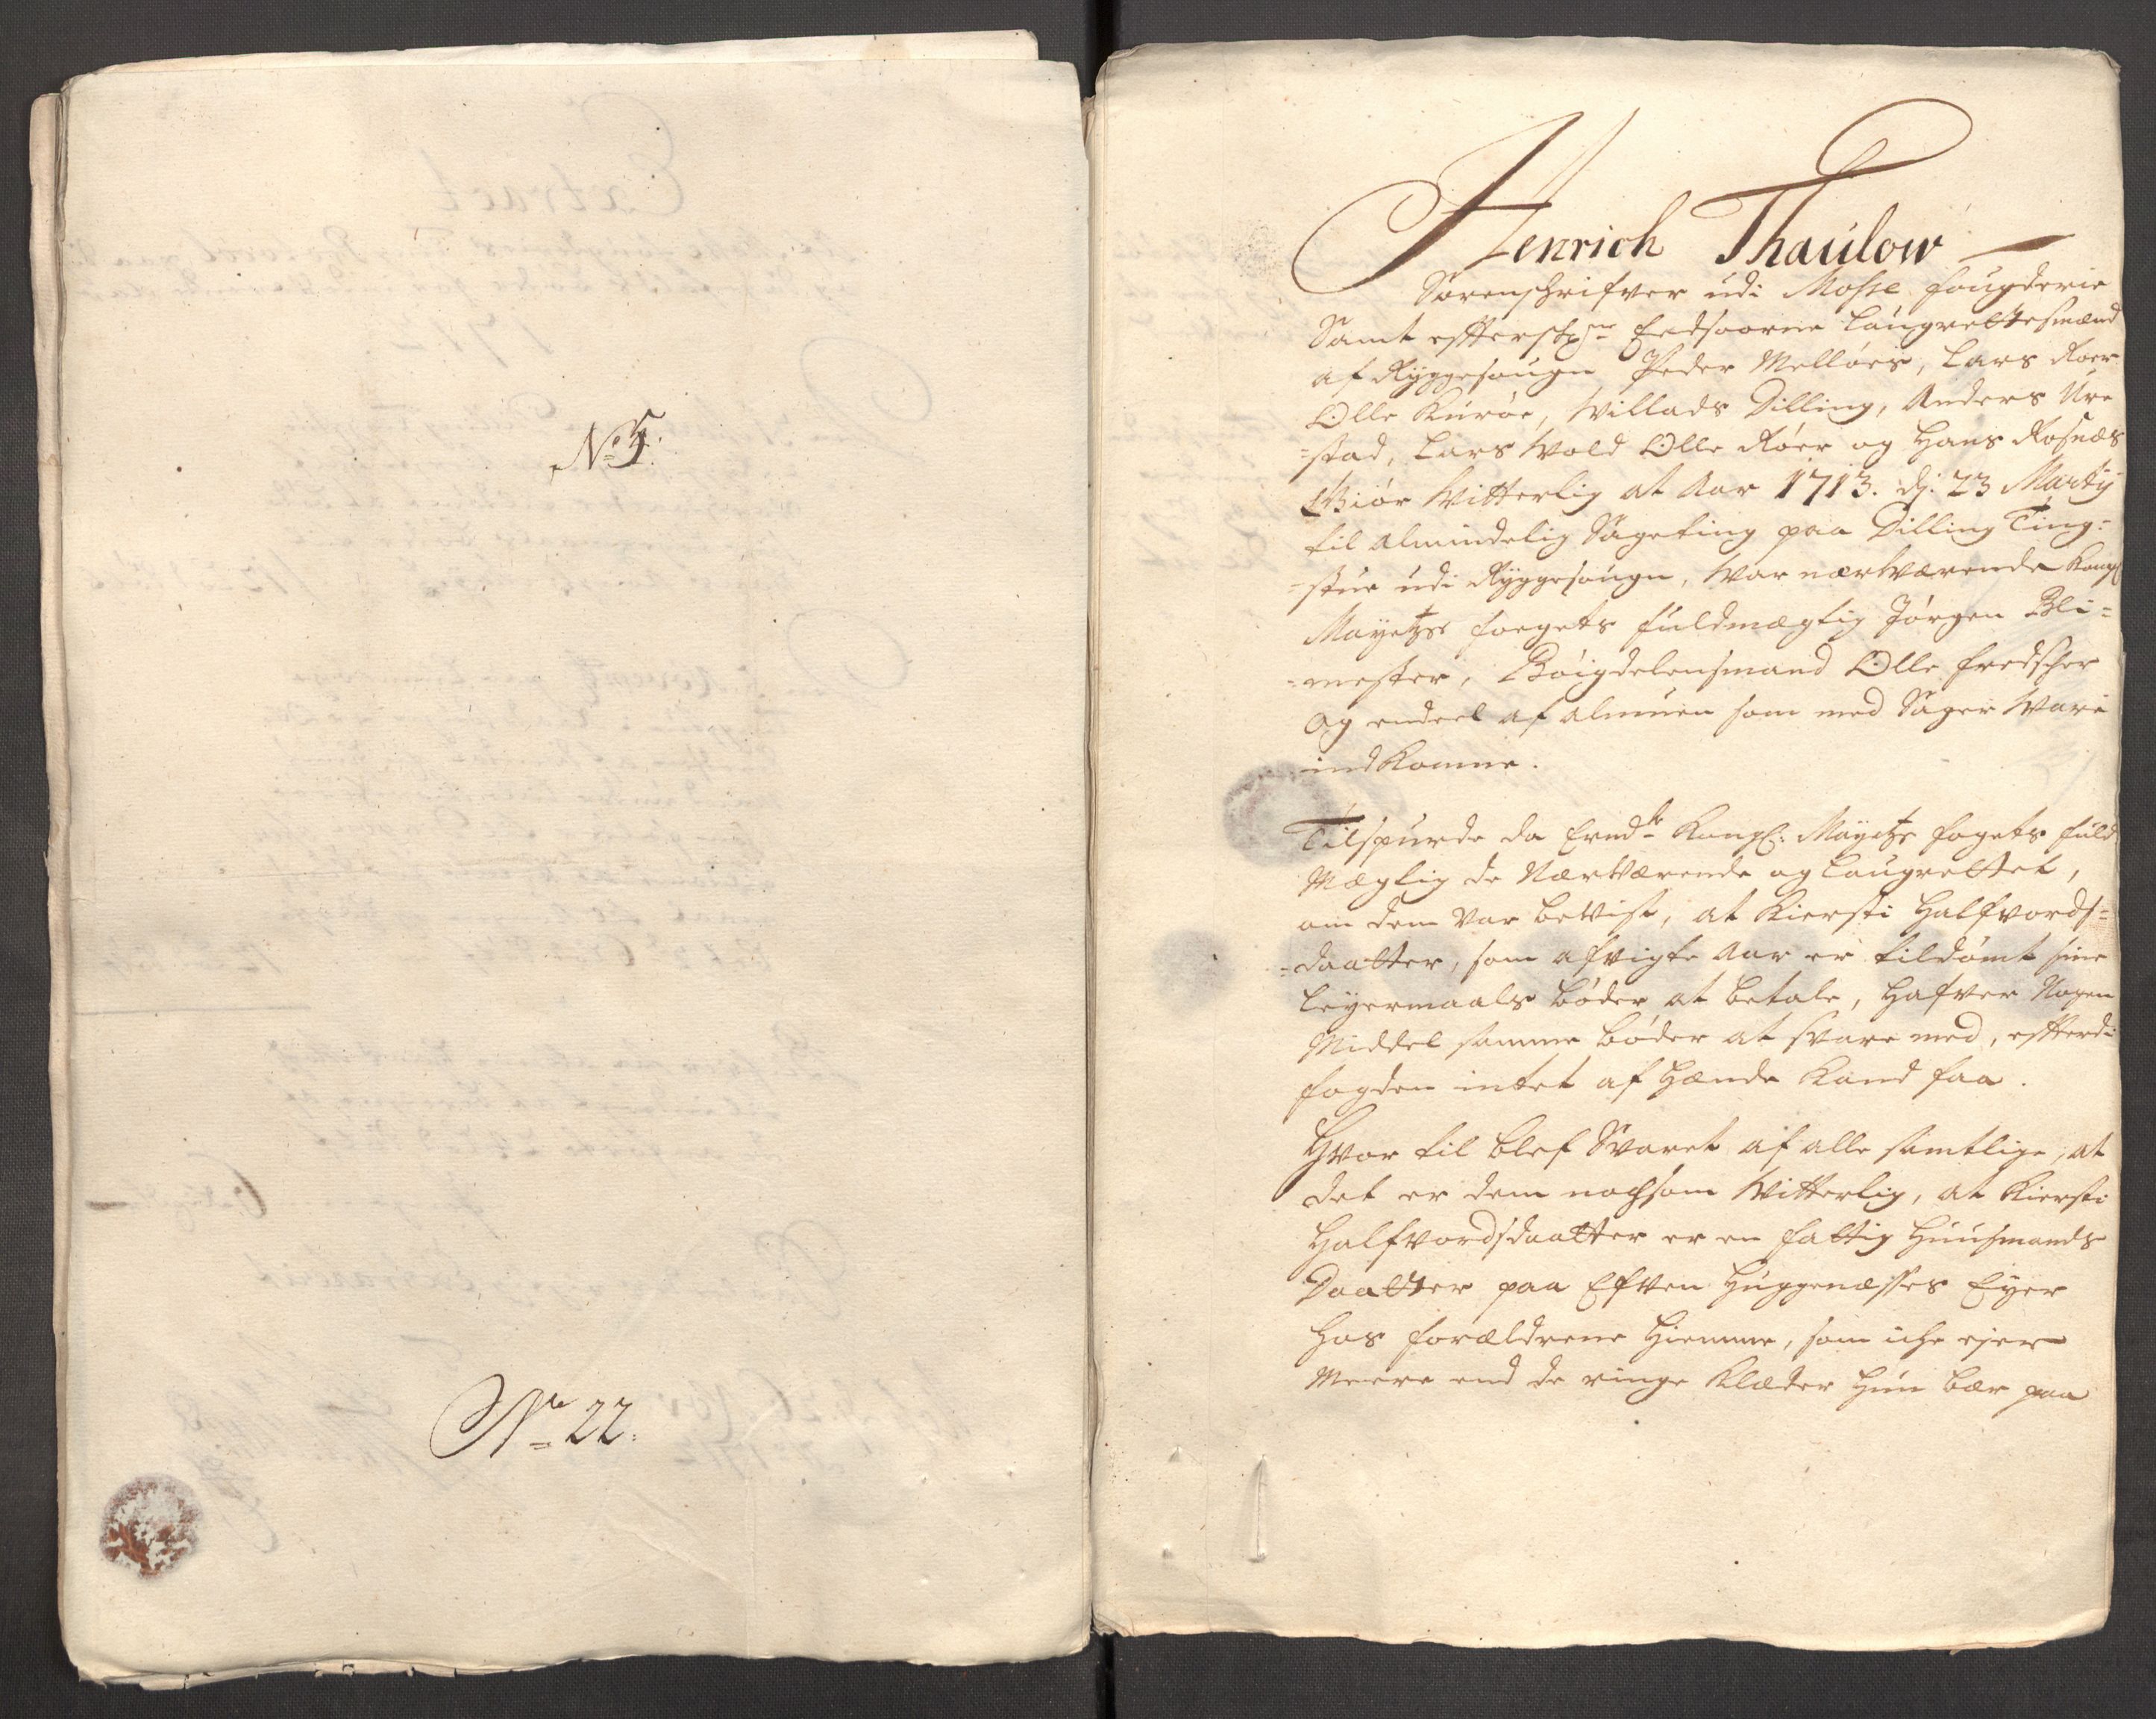 No 5.
No 22.
Henrich Thaulow
Sorenschrifver udi Mosse fougderie
Samt effterschne Eedsoorne Laugrettesmænd
af Ryggesougn Peder Melløes, Lars Roer
Olle Kurøe, Willads Dilling, Anders Ure
=stad, Lars Wold Olle Røer og Hans Rosnæs
Giør Witterlig at Aar 1713. dj: 23 Martij
til almindelig Sageting paa Dilling Ting=
=stue udi Ryggesougn, War nærWærende Kongl
Mayetzs foegets fuldmægtig Jørgen Bli=
=mester, Bøigdelensmand Olle fredscher
og endeel af almuen som med Sager Ware
indkomne.
Tilspurde da Ermdte Kongl: Mayetzs fogets fuld
Mægtig de NærWærende og Laugrettet,
om dem Var bevist, at Kiersti Halfvords=
=daatter, som afvigte Aar er tildømt sine
Leyermaals bøder at betale, Hafver Nogen
Middel samme bøder at svare med, effterdi
fogden intet af Hænde Kand faa.
Hvor til blef Svaret af alle samtlige, at
det er dem nochsom Witterlig, at Kiersti
Halfvordsdaatter er en fattig Huusmands
Daatter paa Efven Huggenæsses Eyer
Hos forældrene Hiemme, som iche ejer
Meere end de ringe Klæder Hun bær paa